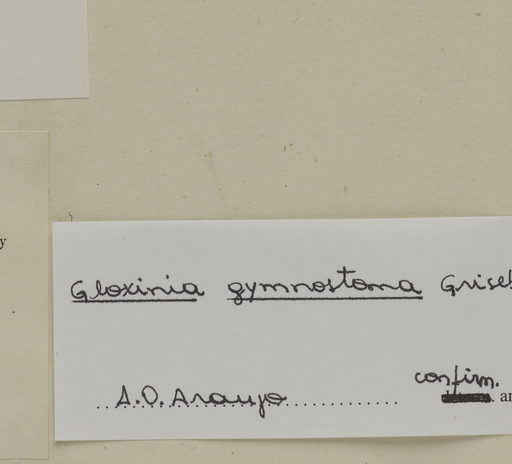 y
Gloxinia gymnostoma Griseb
A.O. Araujo
confirm.